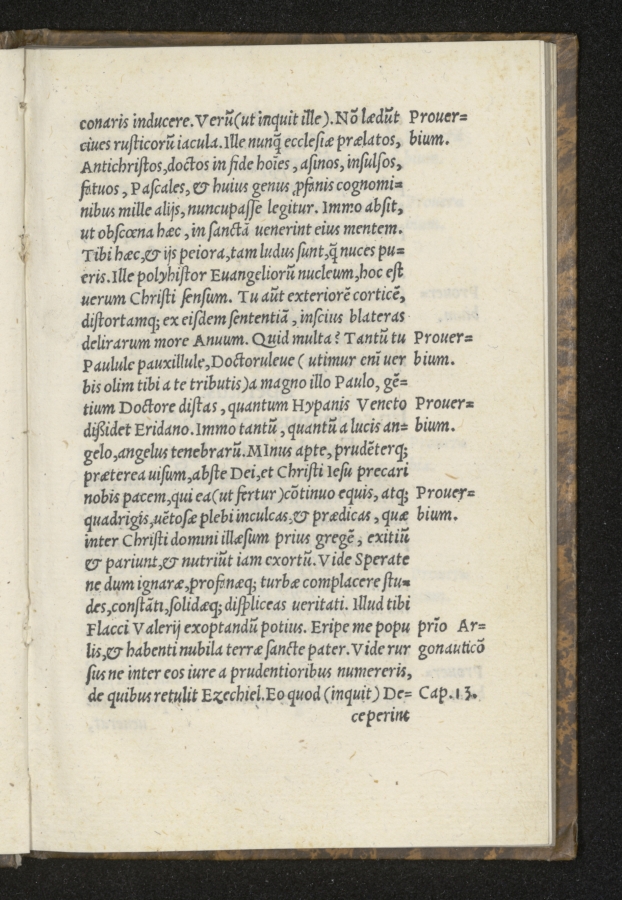 conaris inducere. Verũ (ut inquit ille). Nõ lædũt Prouer=
ciues rusticorũ iacula. Ille nunq̃ ecclesiæ prælatos, bium.
Antichristos, doctos in fide hoĩes, asinos, insulsos,
fatuos, Pascales, & huius genus ꝓfanis cognomi=
nibus mille alijs, nuncupasse legitur. Immo absit,
ut obscœna hæc, in sanctã uenerint eius mentem.
Tibi hæc, & ijs peiora, tam ludus sunt, q̃ nuces pu=
eris. Ille polyhistor Euangeliorũ nucleum, hoc est
uerum Christi sensum. Tu aũt exteriorẽ corticẽ,
distortamq; ex eisdem sententiã, inscius blateras
delirarum more Anuum. Quid multa? Tantũ tu Prouer=
Paulule pauxillule, Doctoruleue (utimur enĩ uer bium.
bis olim tibi a te tributis) a magno illo Paulo, gẽ=
tium Doctore distas, quantum Hypanis Veneto Prouer=
dißidet Eridano. Immo tantũ, quantũ a lucis an= bium.
gelo, angelus tenebrarũ. MInus apte, prudẽterq;
præterea uisum, abste Dei, et Christi Iesu precari
nobis pacem, qui ea (ut fertur) cõtinuo equis, atq; Prouer=
quadrigis, uẽtosæ plebi inculcas, & prædicas, quæ bium.
inter Christi domini illæsum prius gregẽ, exitiũ
& pariunt, & nutriũt iam exortũ. Vide Sperate
ne dum ignaræ, profanæq; turbæ complacere stu=
des, constãti, solidæq; displiceas ueritati. Illud tibi
Flacci Valerij exoptandũ potius. Eripe me popu prĩo Ar=
lis, & habenti nubila terræ sancte pater. Vide rur gonauticõ
sus ne inter eos iure a prudentioribus numereris,
de quibus retulit Ezechiel. Eo quod (inquit) De= Cap. 13.
ceperint